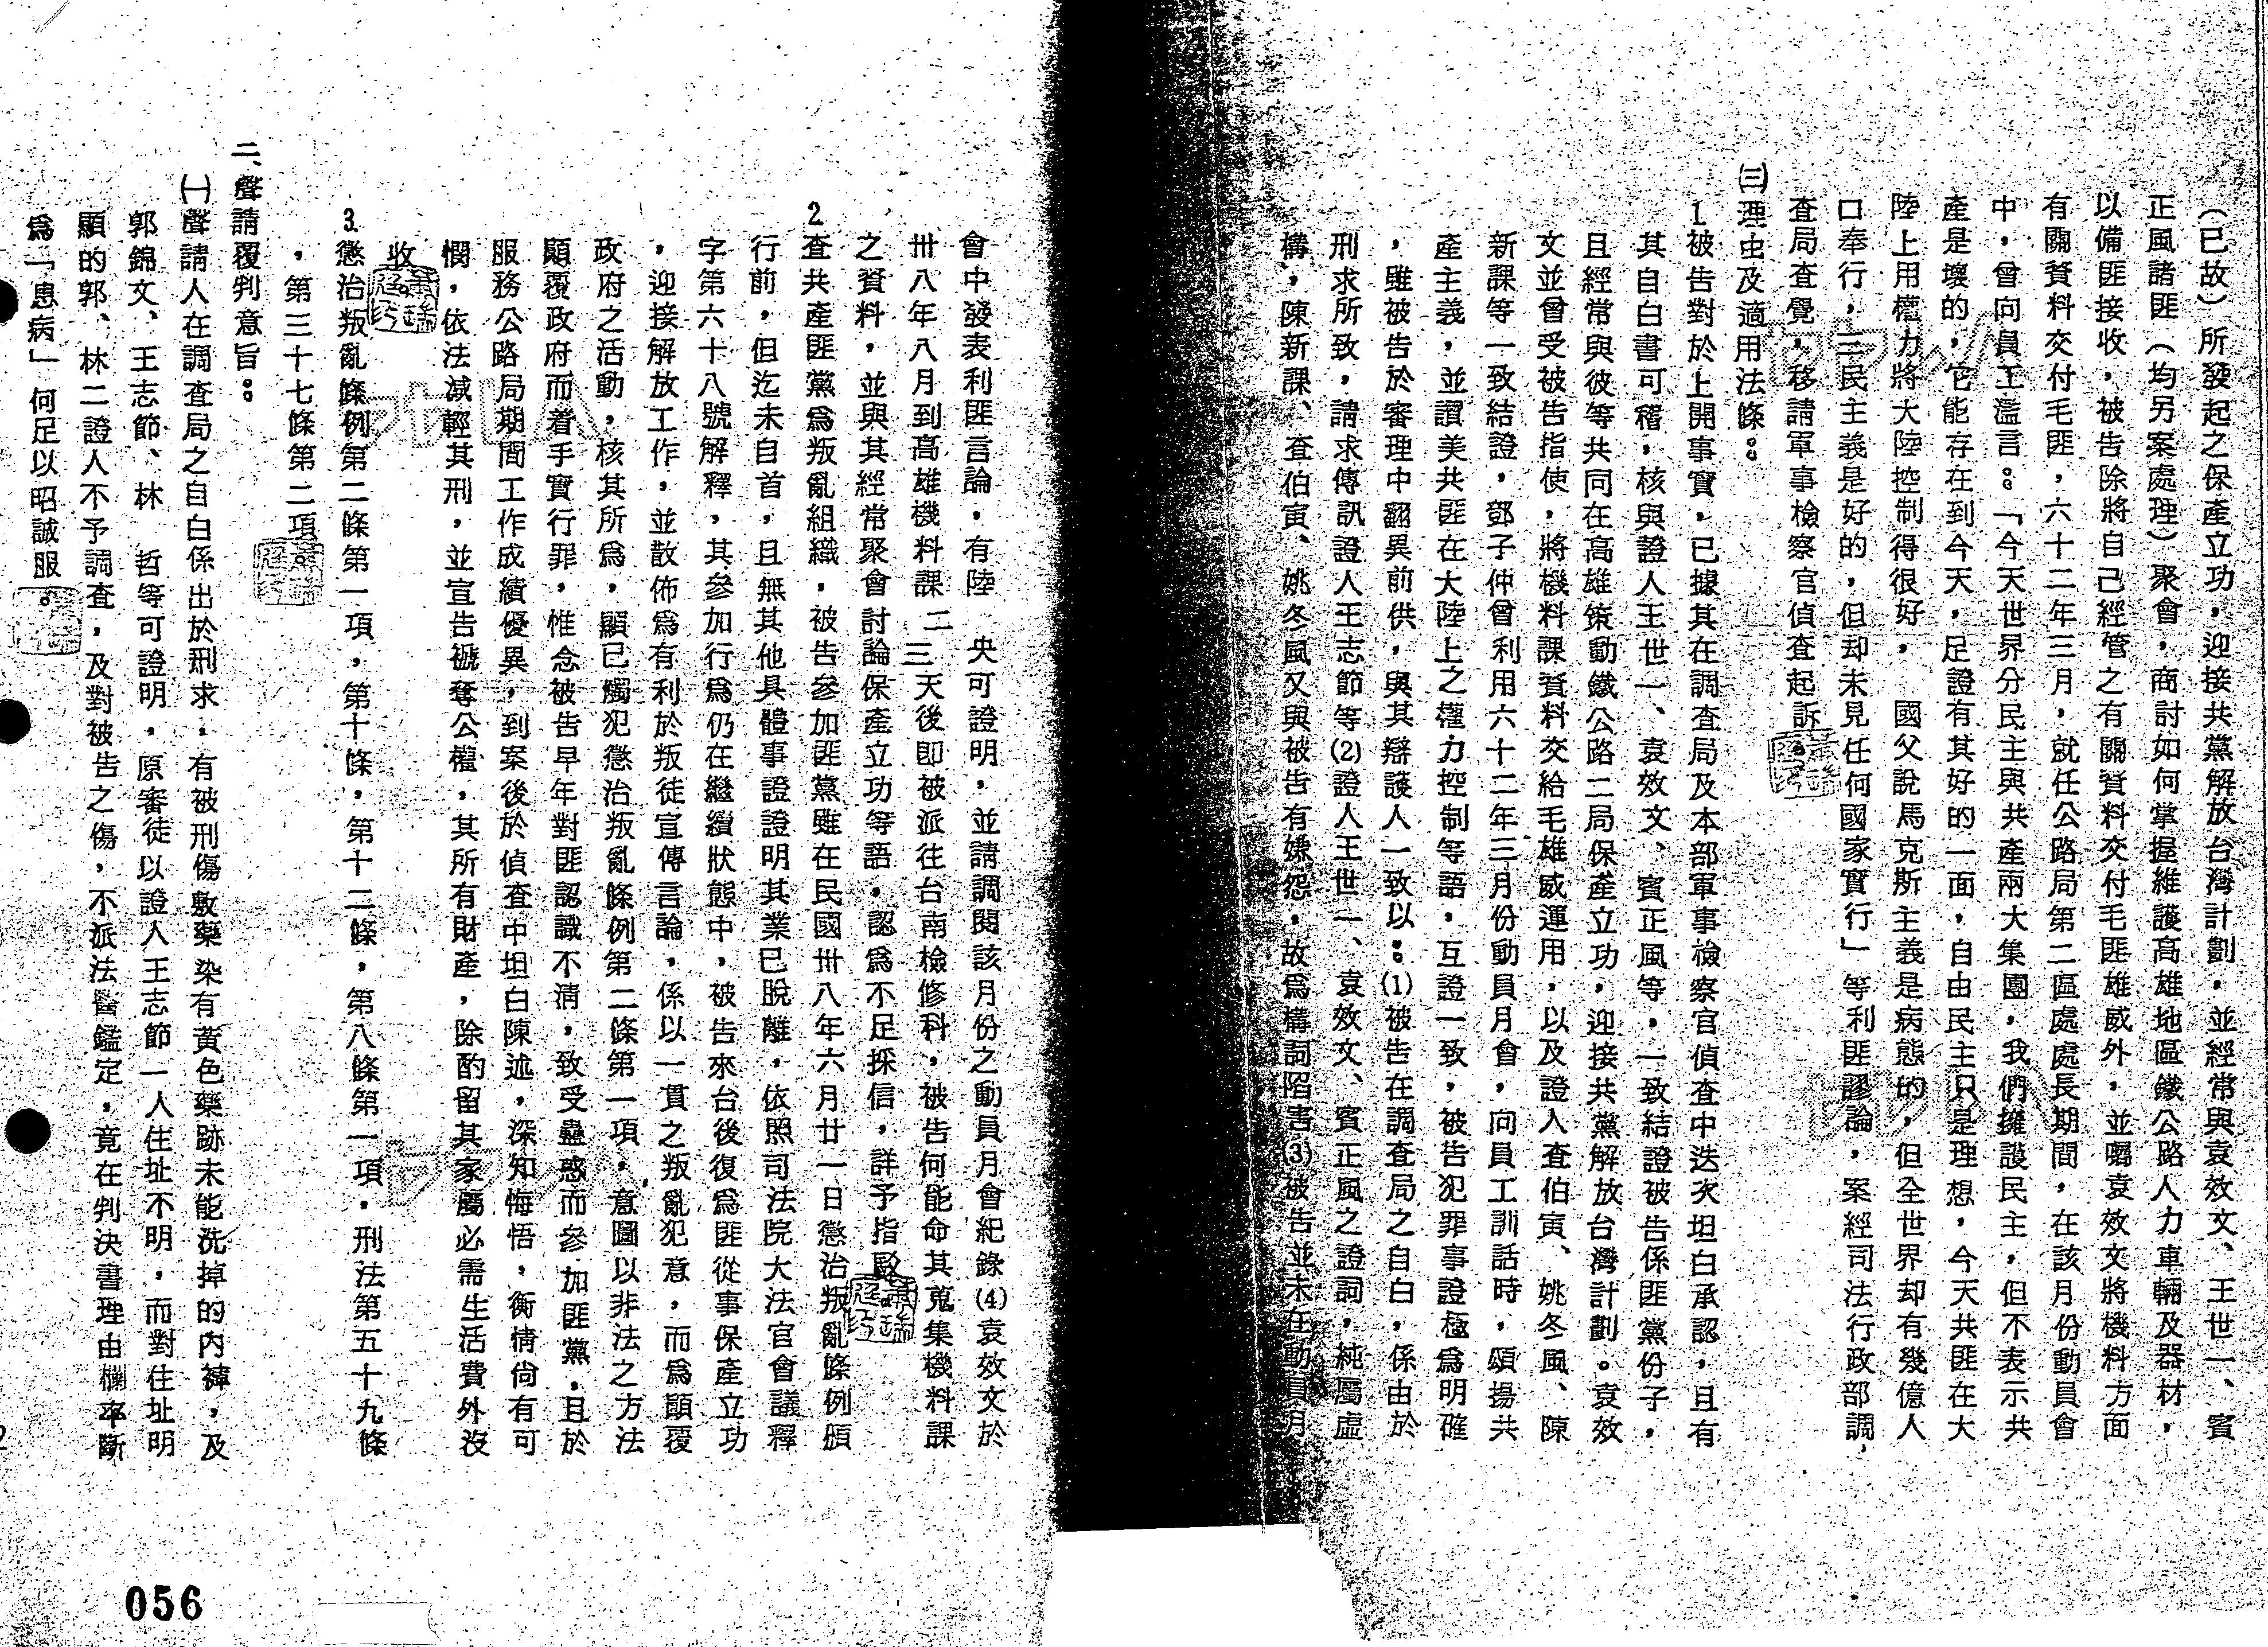 （已故）所發起之保產立功，迎接共黨解放台灣計劃，並經常與袁效文、王世一、賓
正風諸匪（均另案處理）聚會，商討如何掌握維護高雄地區鐵公路人力車輛及器材，
以備匪接收，被告除將自己經管之有關資料交付毛匪雄威外，並囑袁效文將機料方面
有關資料交付毛匪，六十二年三月，就任公路局第二區處處長期間，在該月份動員會
中，曾向員工濫言：「今天世界分民主與共產兩大集團，我們擁護民主，但不表示共
產是壞的，它能存在到今天，足證有其好的一面，自由民主只是理想，今天共匪在大
陸上用權力將大陸控制得很好，　國父說馬克斯主義是病態的，但全世界却有幾億人
口奉行，三民主義是好的，但却未見任何國家實行」等利匪謬論，案經司法行政部調
查局查覺，移請軍事檢察官偵查起訴。
㈢理由及適用法條：
1.被告對於上開事實，已據其在調查局及本部軍事檢察官偵查中迭次坦白承認，且有
其自白書可稽，核與證人王世一、袁效文、賓正風等，一致結證被告係匪黨份子，
且經常與彼等共同在高雄策動鐵公路二局保產立功，迎接共黨解放台灣計劃。袁效
文並曾受被告指使，將機料課資料交給毛雄威運用，以及證人查伯寅、姚冬風、陳
新課等一致結證，鄧子仲曾利用六十二年三月份動員月會，向員工訓話時，頌揚共
產主義，並讚美共匪在大陸上之權力控制等語，互證一致，被告犯罪事證極為明確
，雖被告於審理中翻異前供，與其辯護人一致以：(1)被告在調查局之自白，係由於
刑求所致，請求傳訊證人王志節等(2)證人王世一、袁效文、賓正風之證詞，純屬虛
構，陳新課、查伯寅、姚冬風又與被告有嫌怨，故為構詞陷害(3)被告並未在動員月
會中發表利匪言論，有陸　央可證明，並請調閱該月份之動員月會紀錄(4)袁效文於
卅八年八月到高雄機料課二三天後即被派往台南檢修科，被告何能命其蒐集機料課
之資料，並與其經常聚會討論保產立功等語，認為不足採信，詳予指駁。
2.查共產匪黨為叛亂組織，被告參加匪黨雖在民國卅八年六月廿一日懲治叛亂條例頒
行前，但迄未自首，且無其他具體事證證明其業已脫離，依照司法院大法官會議釋
字第六十八號解釋，其參加行為仍在繼續狀態中，被告來台後復為匪從事保產立功
，迎接解放工作，並散佈為有利於叛徒宣傳言論，係以一貫之叛亂犯意，而為顛覆
政府之活動，核其所為，顯已觸犯懲治叛亂條例第二條第一項，意圖以非法之方法
顛覆政府而着手實行罪，惟念被告早年對匪認識不清，致受蠱惑而參加匪黨，且於
服務公路局期間工作成績優異，到案後於偵查中坦白陳述，深知悔悟，衡情尚有可
憫，依法減輕其刑，並宣告褫奪公權，其所有財產，除酌留其家屬必需生活費外沒
收。
3.懲治叛亂條例第二條第一項，第十條，第十二條，第八條第一項，刑法第五十九條
，第三十七條第二項。
二、聲請覆判意旨：
㈠聲請人在調查局之自白係出於刑求，有被刑傷敷藥染有黃色藥跡未能洗掉的內褲，及
郭錦文、王志節、林　哲等可證明，原審徒以證人王志節一人住址不明，而對住址明
顯的郭、林二證人不予調查，及對被告之傷，不派法醫鑑定，竟在判決書理由欄率斷
為「患病」何足以昭誠服。
056